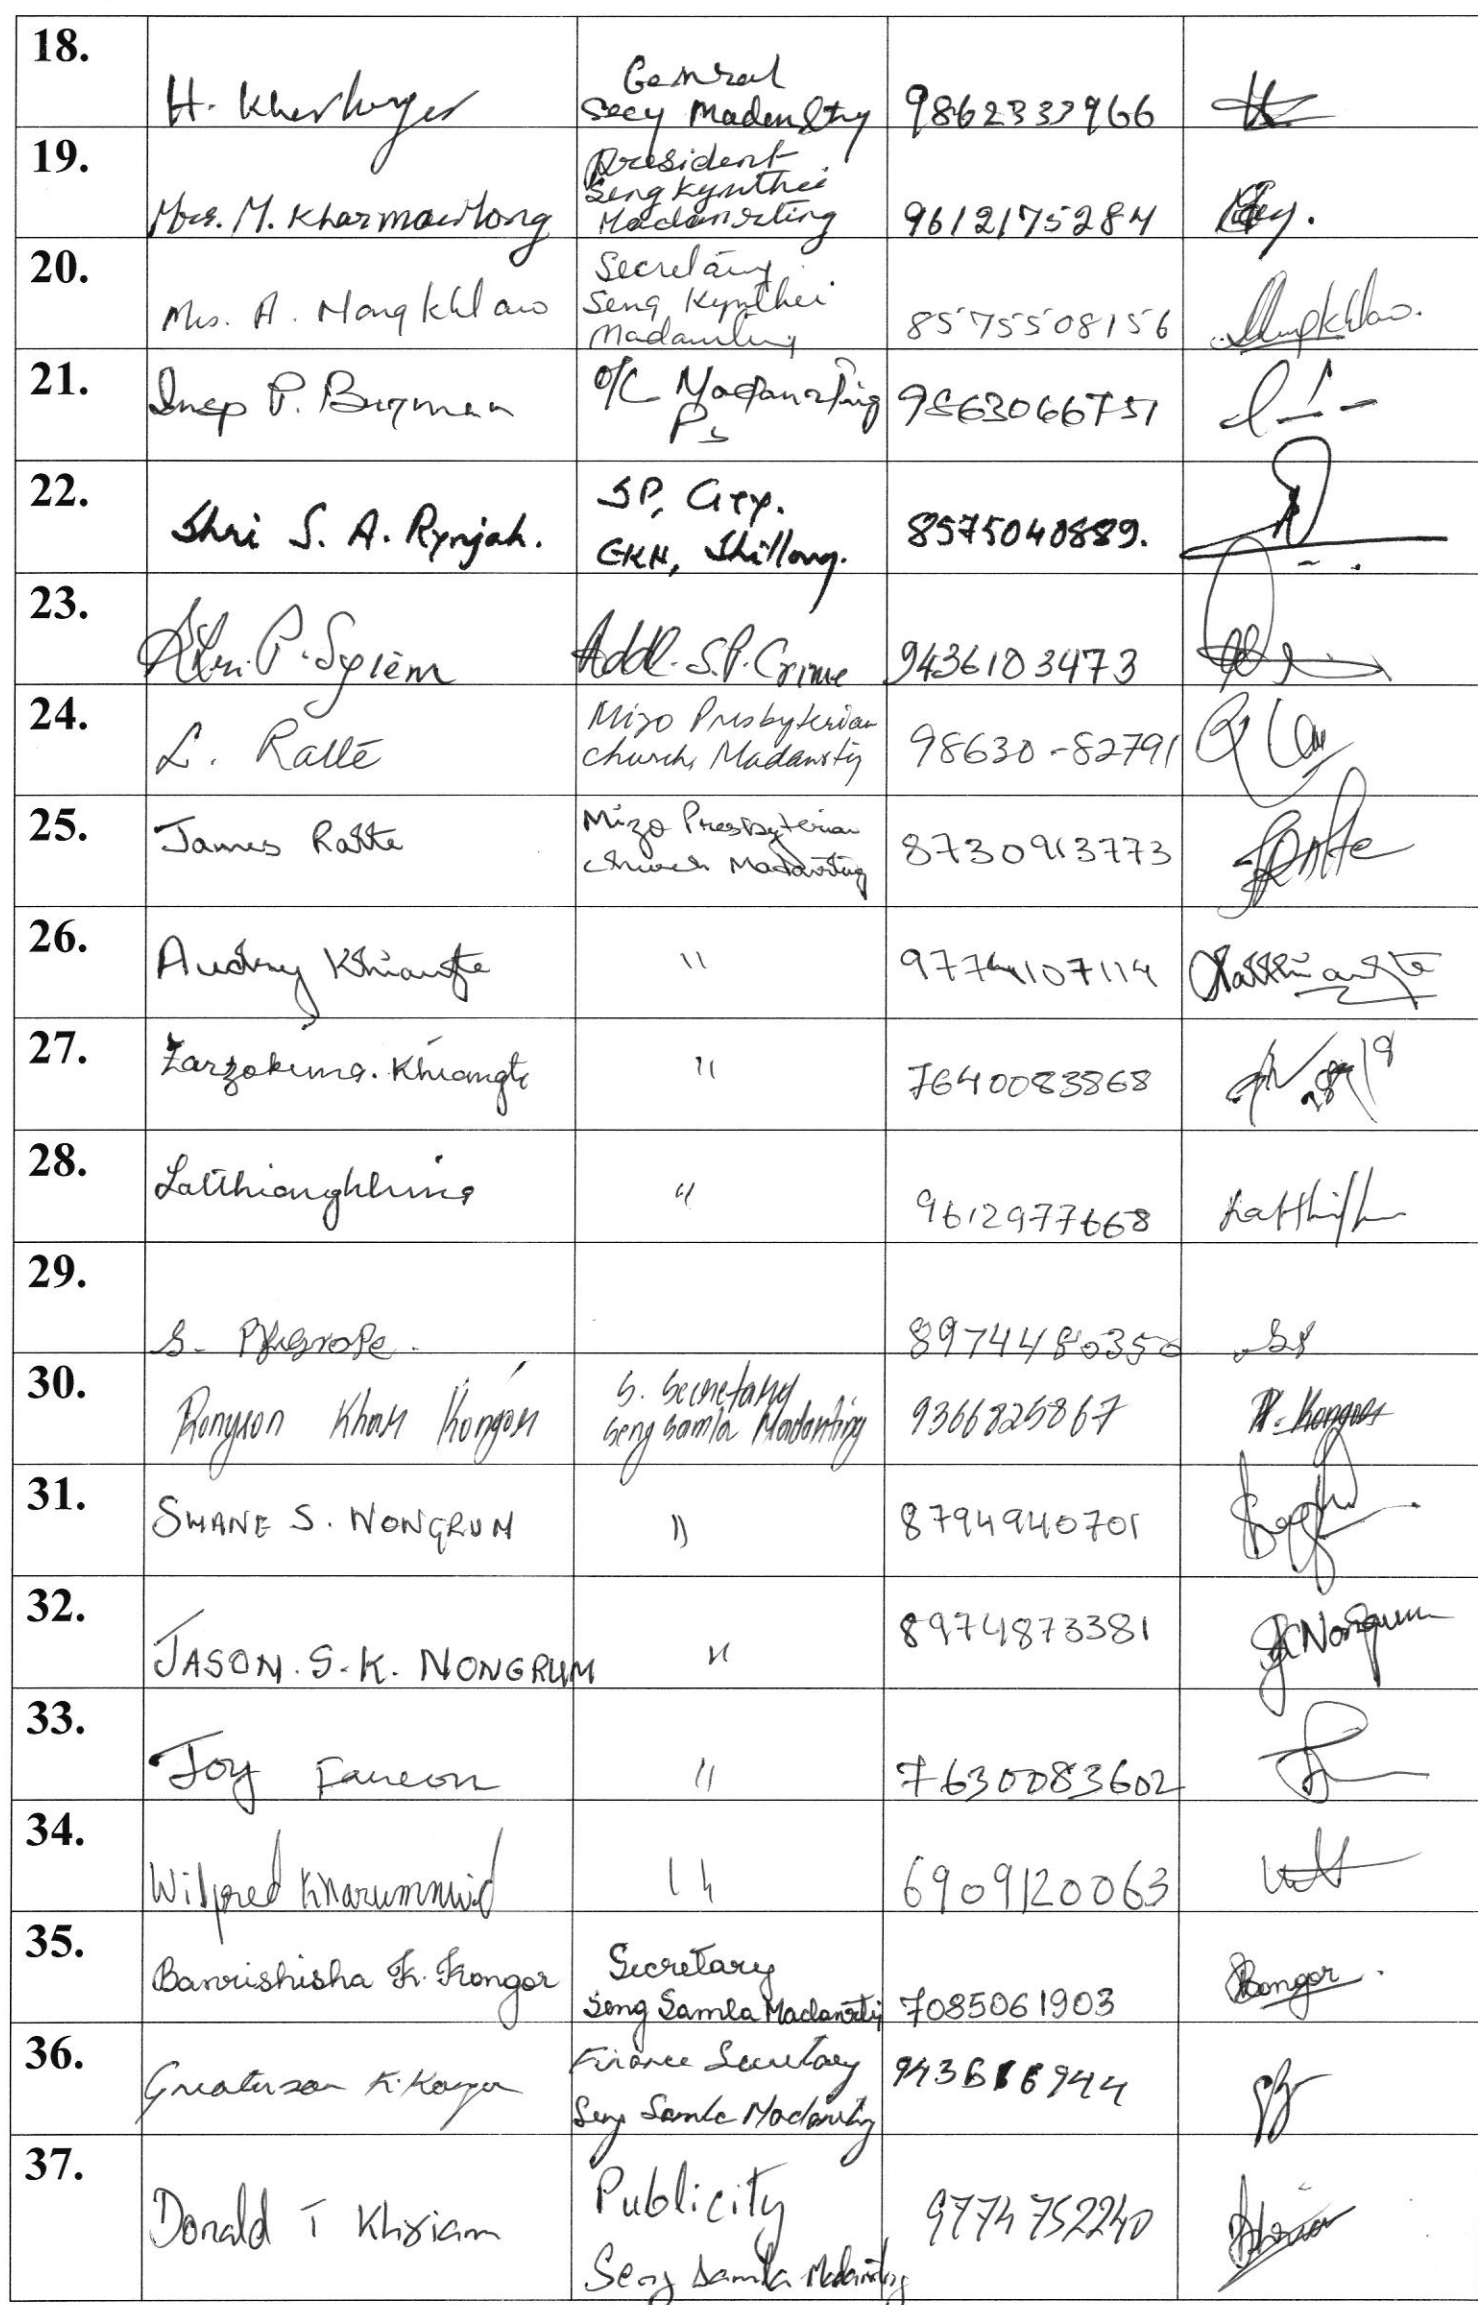 18.
H.
General
Secy
9862333966
19.
Mrs. M. Kharmawlong
President
Seng Kynthei
Madanrting
9612175284
20.
Mrs. A. Nongkhlaw
Secretary
Seng Kynthei
Madanrting
8575508156
21.
Insp P. Burman
O/C Madanrting
Ps
9863066751
22.
Shri S. A. Rynjah.
SP, City.
EKH, Shillong.
8575040889.
23.
Shri. P. Syiem
Addl. S.P. Crime
9436103473
24.
L. Ralte
Mizo Presbyterian
church, Madanrting
98630-82791
25.
James Ralte
Mizo Presbyterian
church Madanrting
8730913773
Ralte
26.
Audrey Khiangte
"
9774107114
27.
Zarzokima. Khiangte
"
7640083868
28.
Lalthianghlima
"
9612977668
29.
S.
8974480350
30.
Ronyson Khar Kongor
S. Secretary
Seng Samla Madanrting
9366825867
R. Kongor
31.
SHANE S. NONGRUM
"
8794940701
32.
JASON. S.K. NONGRUM
"
8974873381
Nongrum
33.
Joy
"
7630083602
34.
Wilfred Kharumnuid
"
6909120063
35.
Banrishisha K. Kongor
Secretary
Seng Samla Madanrting
7085061903
Kongor.
36.
Greaterson K. Kongor
Finance Secretary
Seng Samla Madanrting
37.
Donald T Khriam
Publicity
Seng Samla Madanrting
9774752240